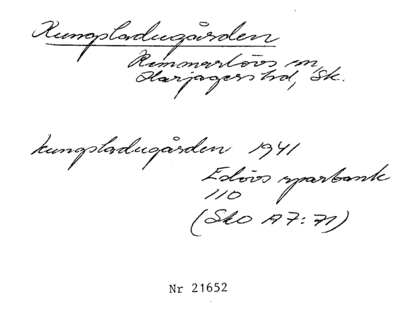 Kungsladugården
Remmarlövs sn,
Harjagers hd, Sk.
kungsladugården 1941
Eslövs sparbank
110
(Sko A7:71)
Nr 21652